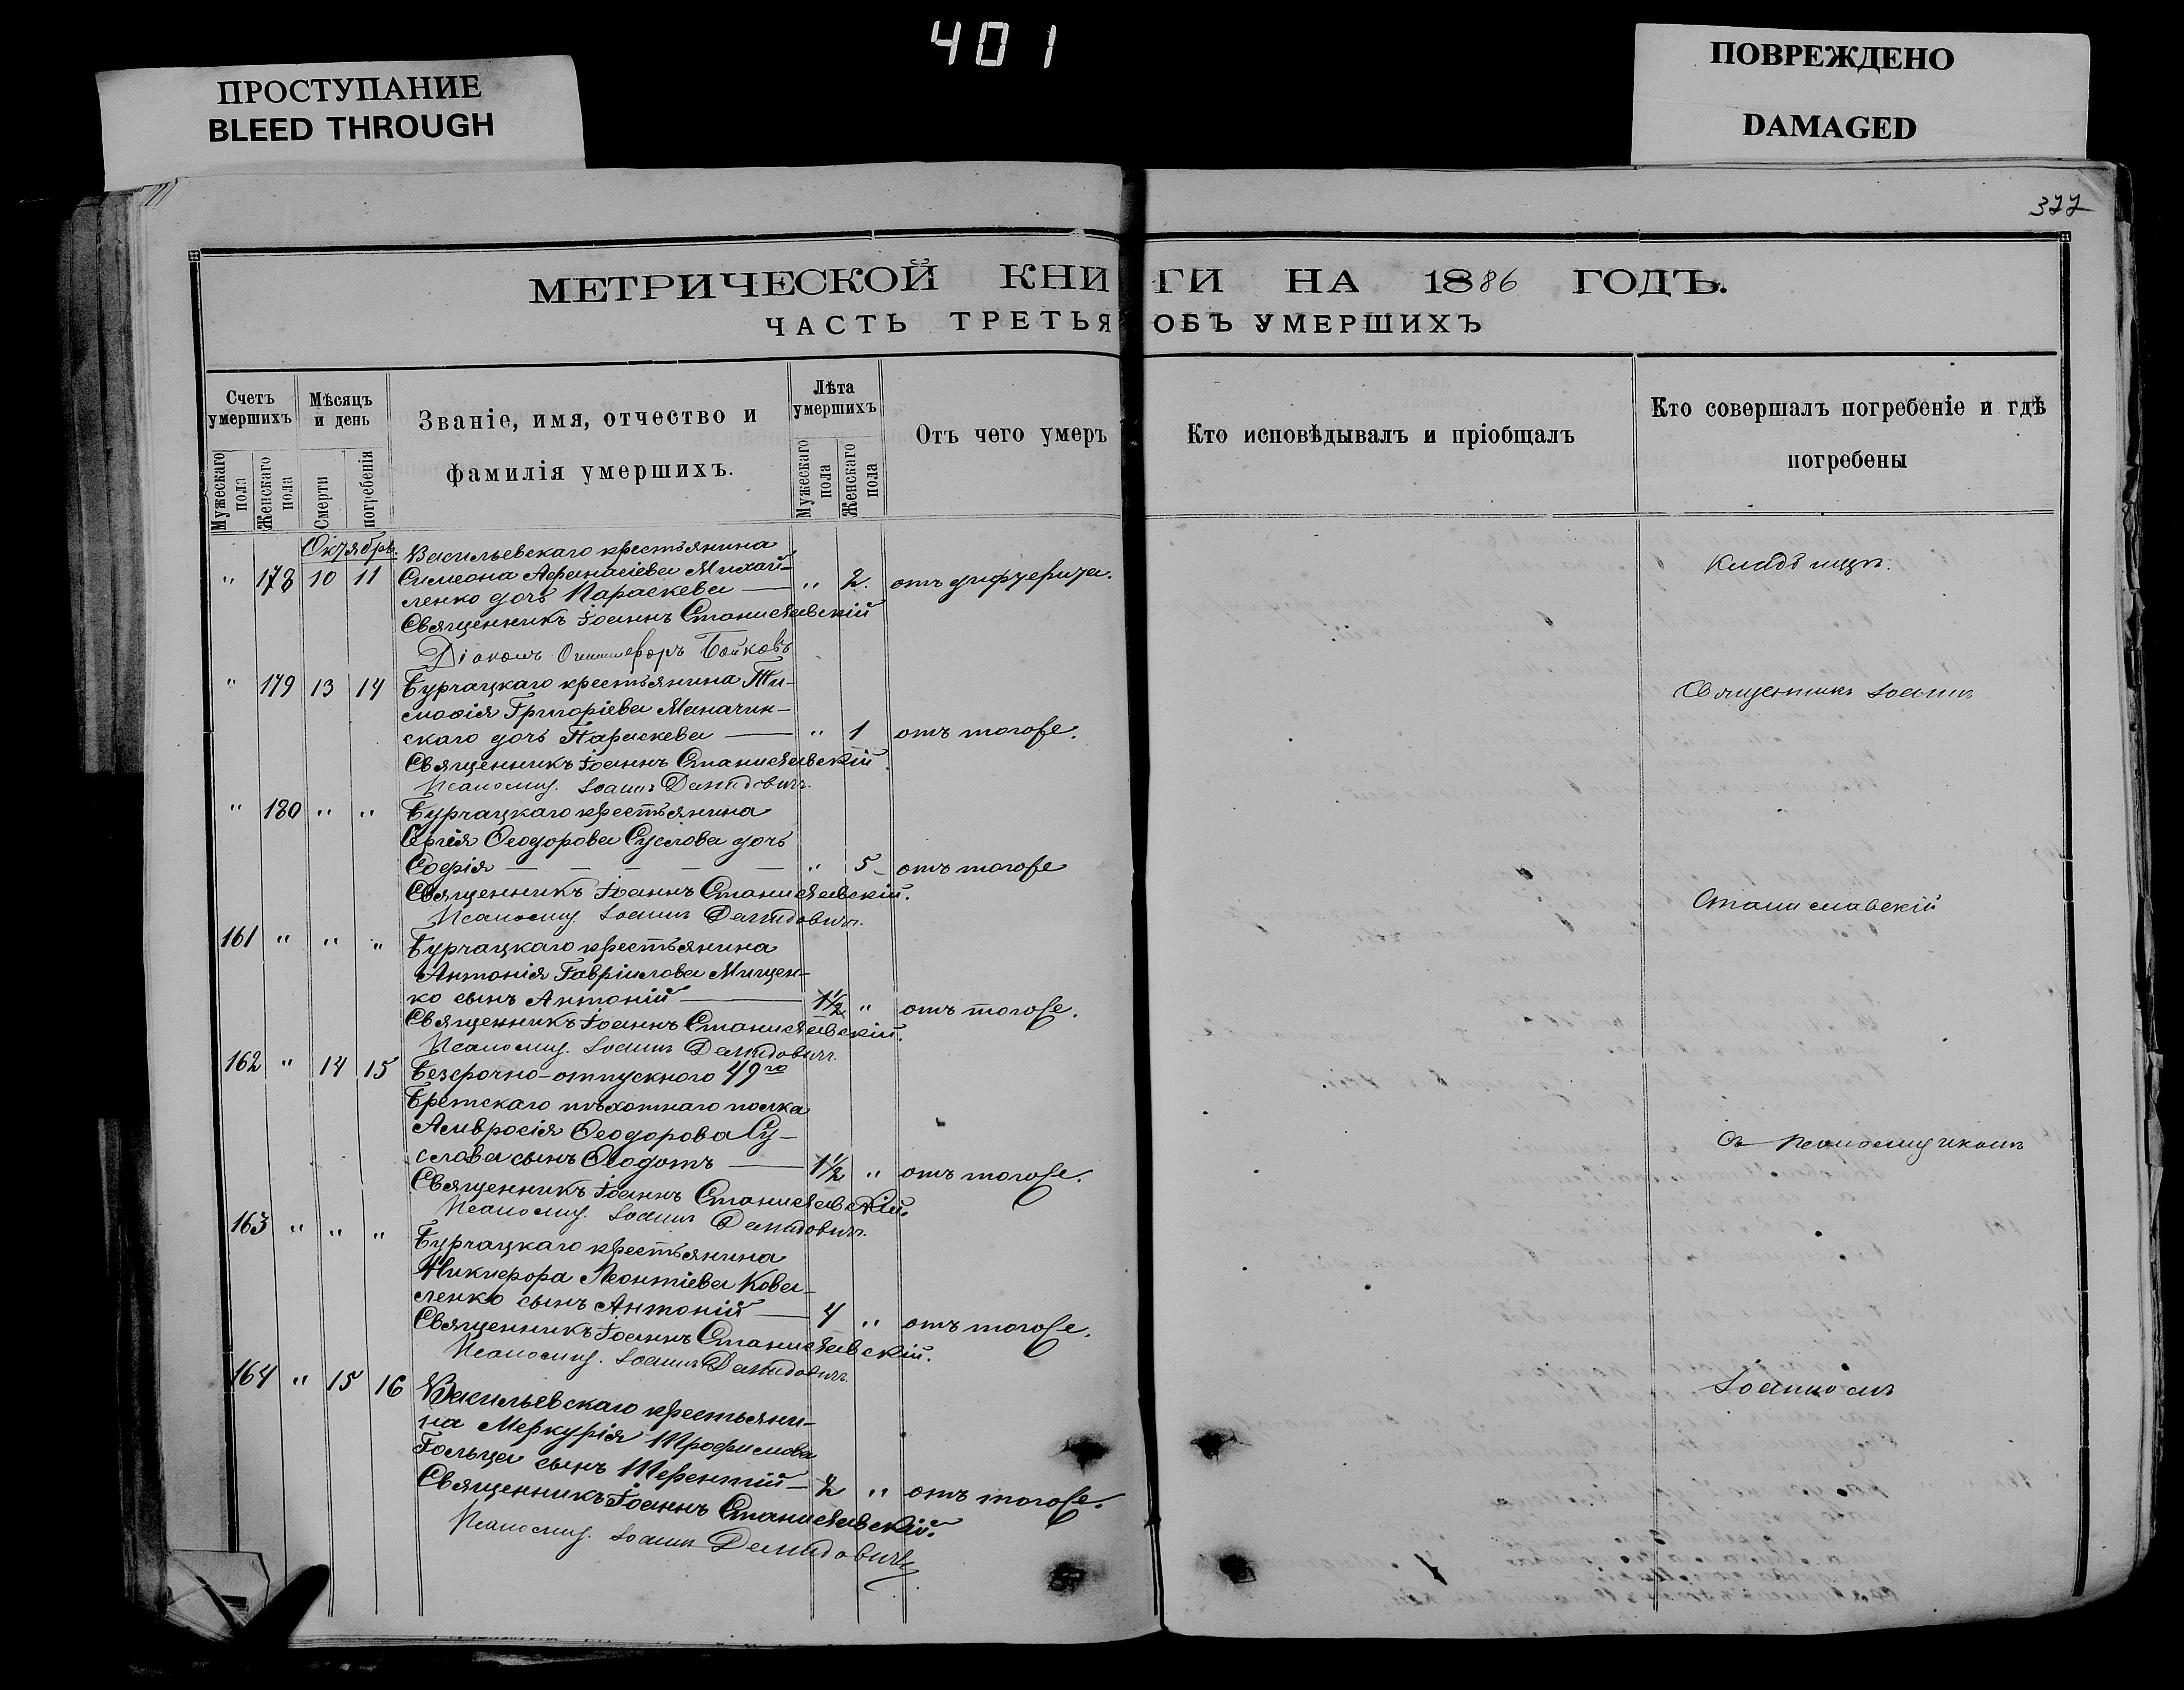 401
ПРОСТУПАНИЕ
BLEED THROUGH
ПОВРЕЖДЕНО
DAMAGED
377
МЕТРИЧЕСКОЙ КНИГИ НА 1886 ГОДЪ.
ЧАСТЬ ТРЕТЬЯ ОБЪ УМЕРШИХЪ
Счетъ умершихъ
Мужескаго пола
Женскаго пола
Мѣсяцъ и день
Смерти
погребенія
Званіе, имя, отчество и
фамилія умершихъ.
Лѣта умершихъ
Мужескаго пола
Женскаго пола
Отъ чего умеръ
Кто исповѣдывалъ и пріобщалъ
Кто совершалъ погребеніе и гдѣ
погребены
Октябрь.
Васильевскаго крестьянина
" 178 10 11 Симеона Аѳанасіева Михай-
ленко дочь Параскева — " 2. отъ дифтерита.
Священникъ Іоаннъ Станиславскій
Діаконъ Бойковъ
" 179 13 14 Бурчацкаго крестьянина Ти-
моѳія Григоріева Маначин-
скаго дочь Параскева — " 1 отъ тогоже.
Священникъ Іоаннъ Станиславскій.
Псаломщ. Іоаннъ Демидовичъ.
" 180 " " Бурчацкаго крестьянина
Сергія Ѳеодорова Суслова дочь
Софія — — — — — " 5 отъ тогоже
Священникъ Іоаннъ Станиславскій.
Псаломщ. Іоаннъ Демидовичъ.
161 " " " Бурчацкаго крестьянина
Антонія Гавріилова Мищен-
ко сынъ Антоній — 1½ " отъ тогоже.
Священникъ Іоаннъ Станиславскій.
Псаломщ. Іоаннъ Демидовичъ.
162 " 14 15 Безсрочно-отпускного 49го
Бретскаго пѣхотнаго полка
Амвросія Ѳеодорова Су-
слова сынъ Ѳеодотъ — 1½ " отъ тогоже.
Священникъ Іоаннъ Станиславскій.
Псаломщ. Іоаннъ Демидовичъ.
163 " " " Бурчацкаго крестьянина
Никифора Леонтіева Кова-
ленко сынъ Антоній — 4 " отъ тогоже.
Священникъ Іоаннъ Станиславскій.
Псаломщ. Іоаннъ Демидовичъ.
164 " 15 16 Васильевскаго крестьяни-
на Меркурія Трофимова
Гольца сынъ Терентій — 2 " отъ тогоже.
Священникъ Іоаннъ Станиславскій.
Псаломщ. Іоаннъ Демидовичъ
Священникъ Іоаннъ
Станиславскій
съ псаломщикомъ
Іоанномъ